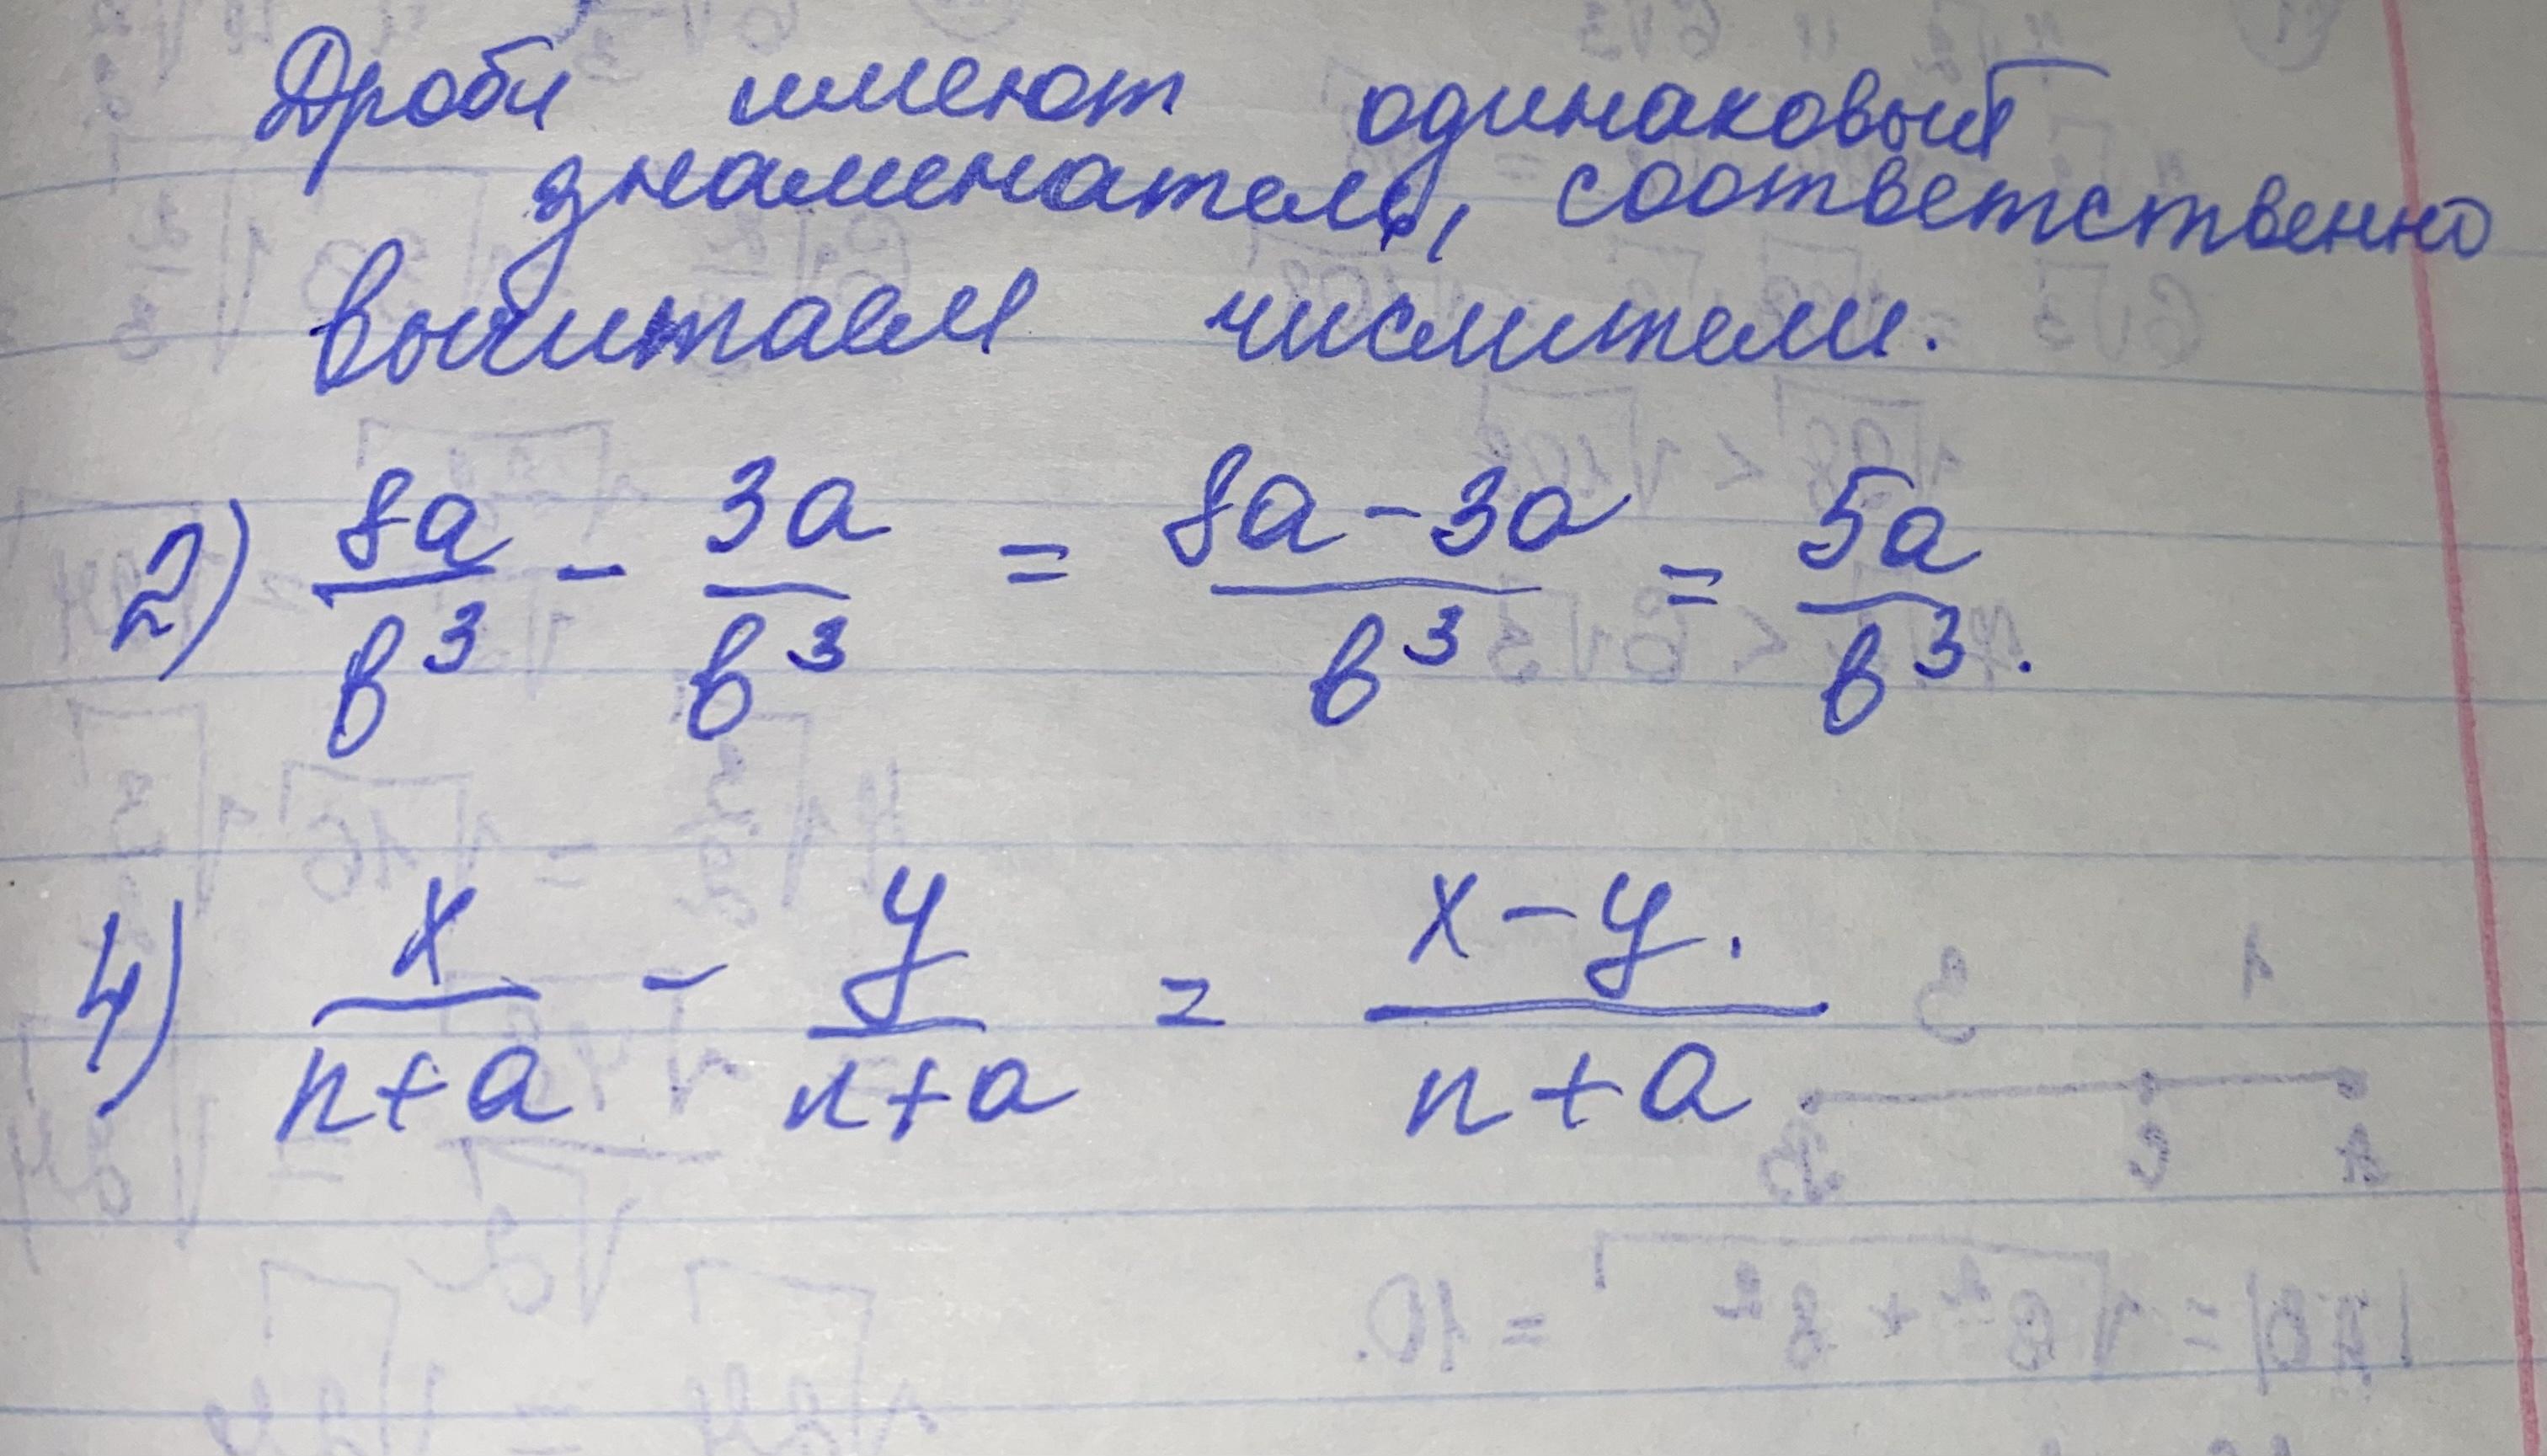 Дроби имеют одинаковый
знаменатель, соответственно
вычитаем числители.
2) 8a/b³ - 3a/b³ = 8a-3a/b³ = 5a/b³.
4) x/n+a - y/n+a = x-y./n+a